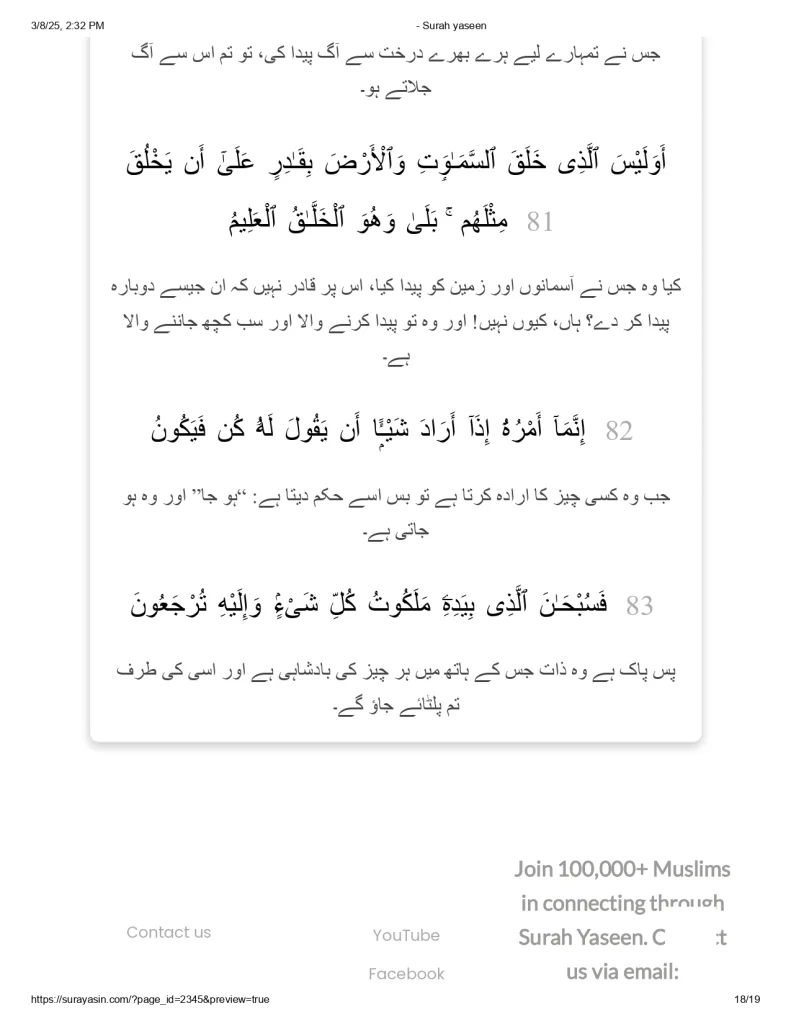 3/8/25, 2:32 PM
- Surah yaseen
جس نے تمہارے لیے ہرے بھرے درخت سے آگ پیدا کی، تو تم اس سے آگ
جلاتے ہو۔
أَوَلَيْسَ ٱلَّذِى خَلَقَ ٱلسَّمَـٰوَٰتِ وَٱلْأَرْضَ بِقَـٰدِرٍ عَلَىٰٓ أَن يَخْلُقَ
مِثْلَهُم ۚ بَلَىٰ وَهُوَ ٱلْخَلَّـٰقُ ٱلْعَلِيمُ 81
کیا وہ جس نے آسمانوں اور زمین کو پیدا کیا، اس پر قادر نہیں کہ ان جیسے دوبارہ
پیدا کر دے؟ ہاں، کیوں نہیں! اور وہ تو پیدا کرنے والا اور سب کچھ جاننے والا
ہے۔
إِنَّمَآ أَمْرُهُۥٓ إِذَآ أَرَادَ شَيْـًٔا أَن يَقُولَ لَهُۥ كُن فَيَكُونُ 82
جب وہ کسی چیز کا ارادہ کرتا ہے تو بس اسے حکم دیتا ہے: “ہو جا” اور وہ ہو
جاتی ہے۔
فَسُبْحَـٰنَ ٱلَّذِى بِيَدِهِۦ مَلَكُوتُ كُلِّ شَىْءٍۢ وَإِلَيْهِ تُرْجَعُونَ 83
پس پاک ہے وہ ذات جس کے ہاتھ میں ہر چیز کی بادشاہی ہے اور اسی کی طرف
تم پلٹائے جاؤ گے۔
Join 100,000+ Muslims
in connecting through
Surah Yaseen.
us via email:
Contact us
YouTube
Facebook
https://surayasin.com/?page_id=2345&preview=true
18/19